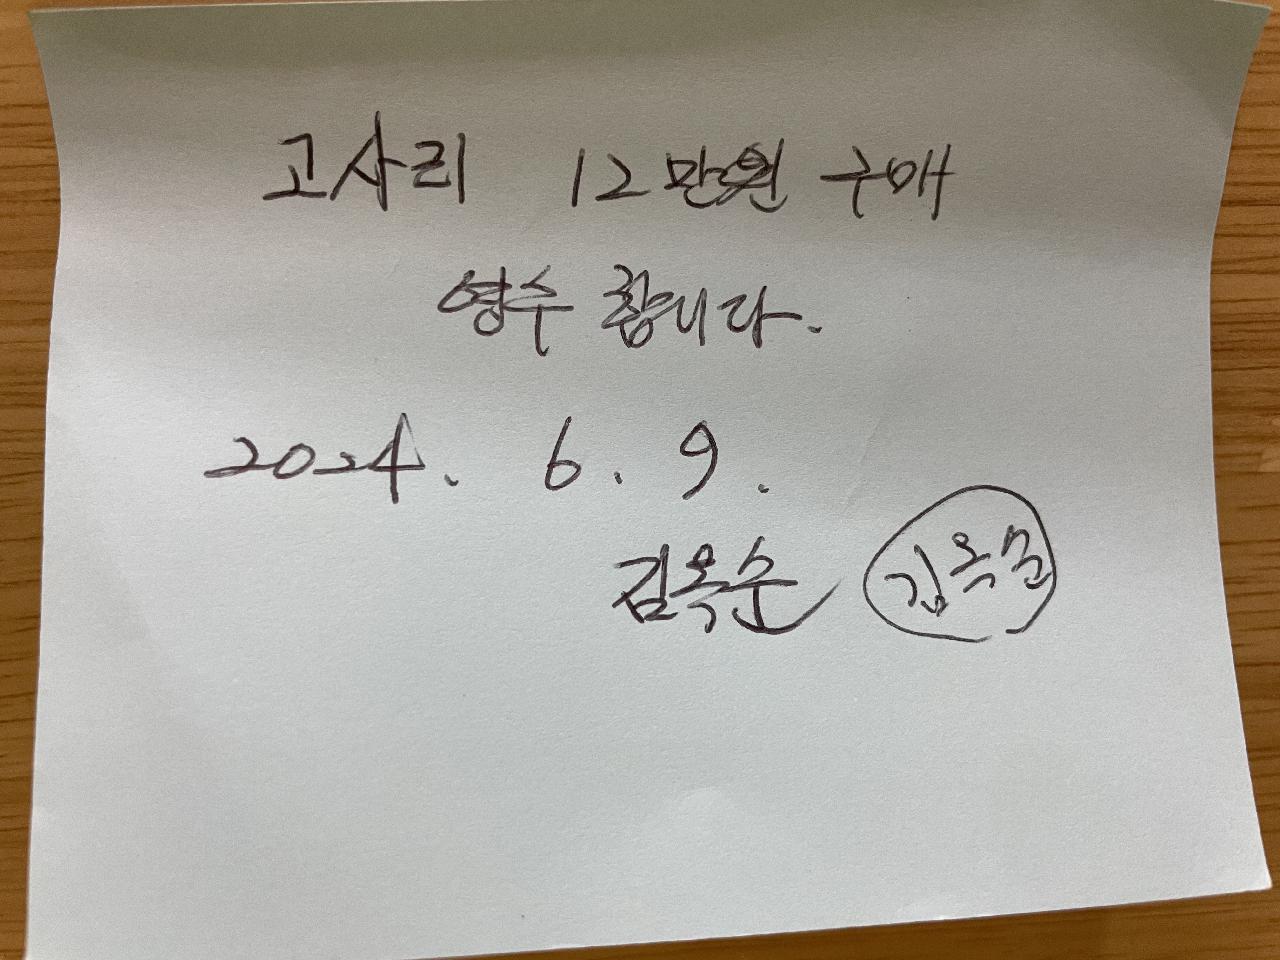 고사리 12만원 구매
영수 합니다.
2024. 6. 9.
김옥순 김옥순